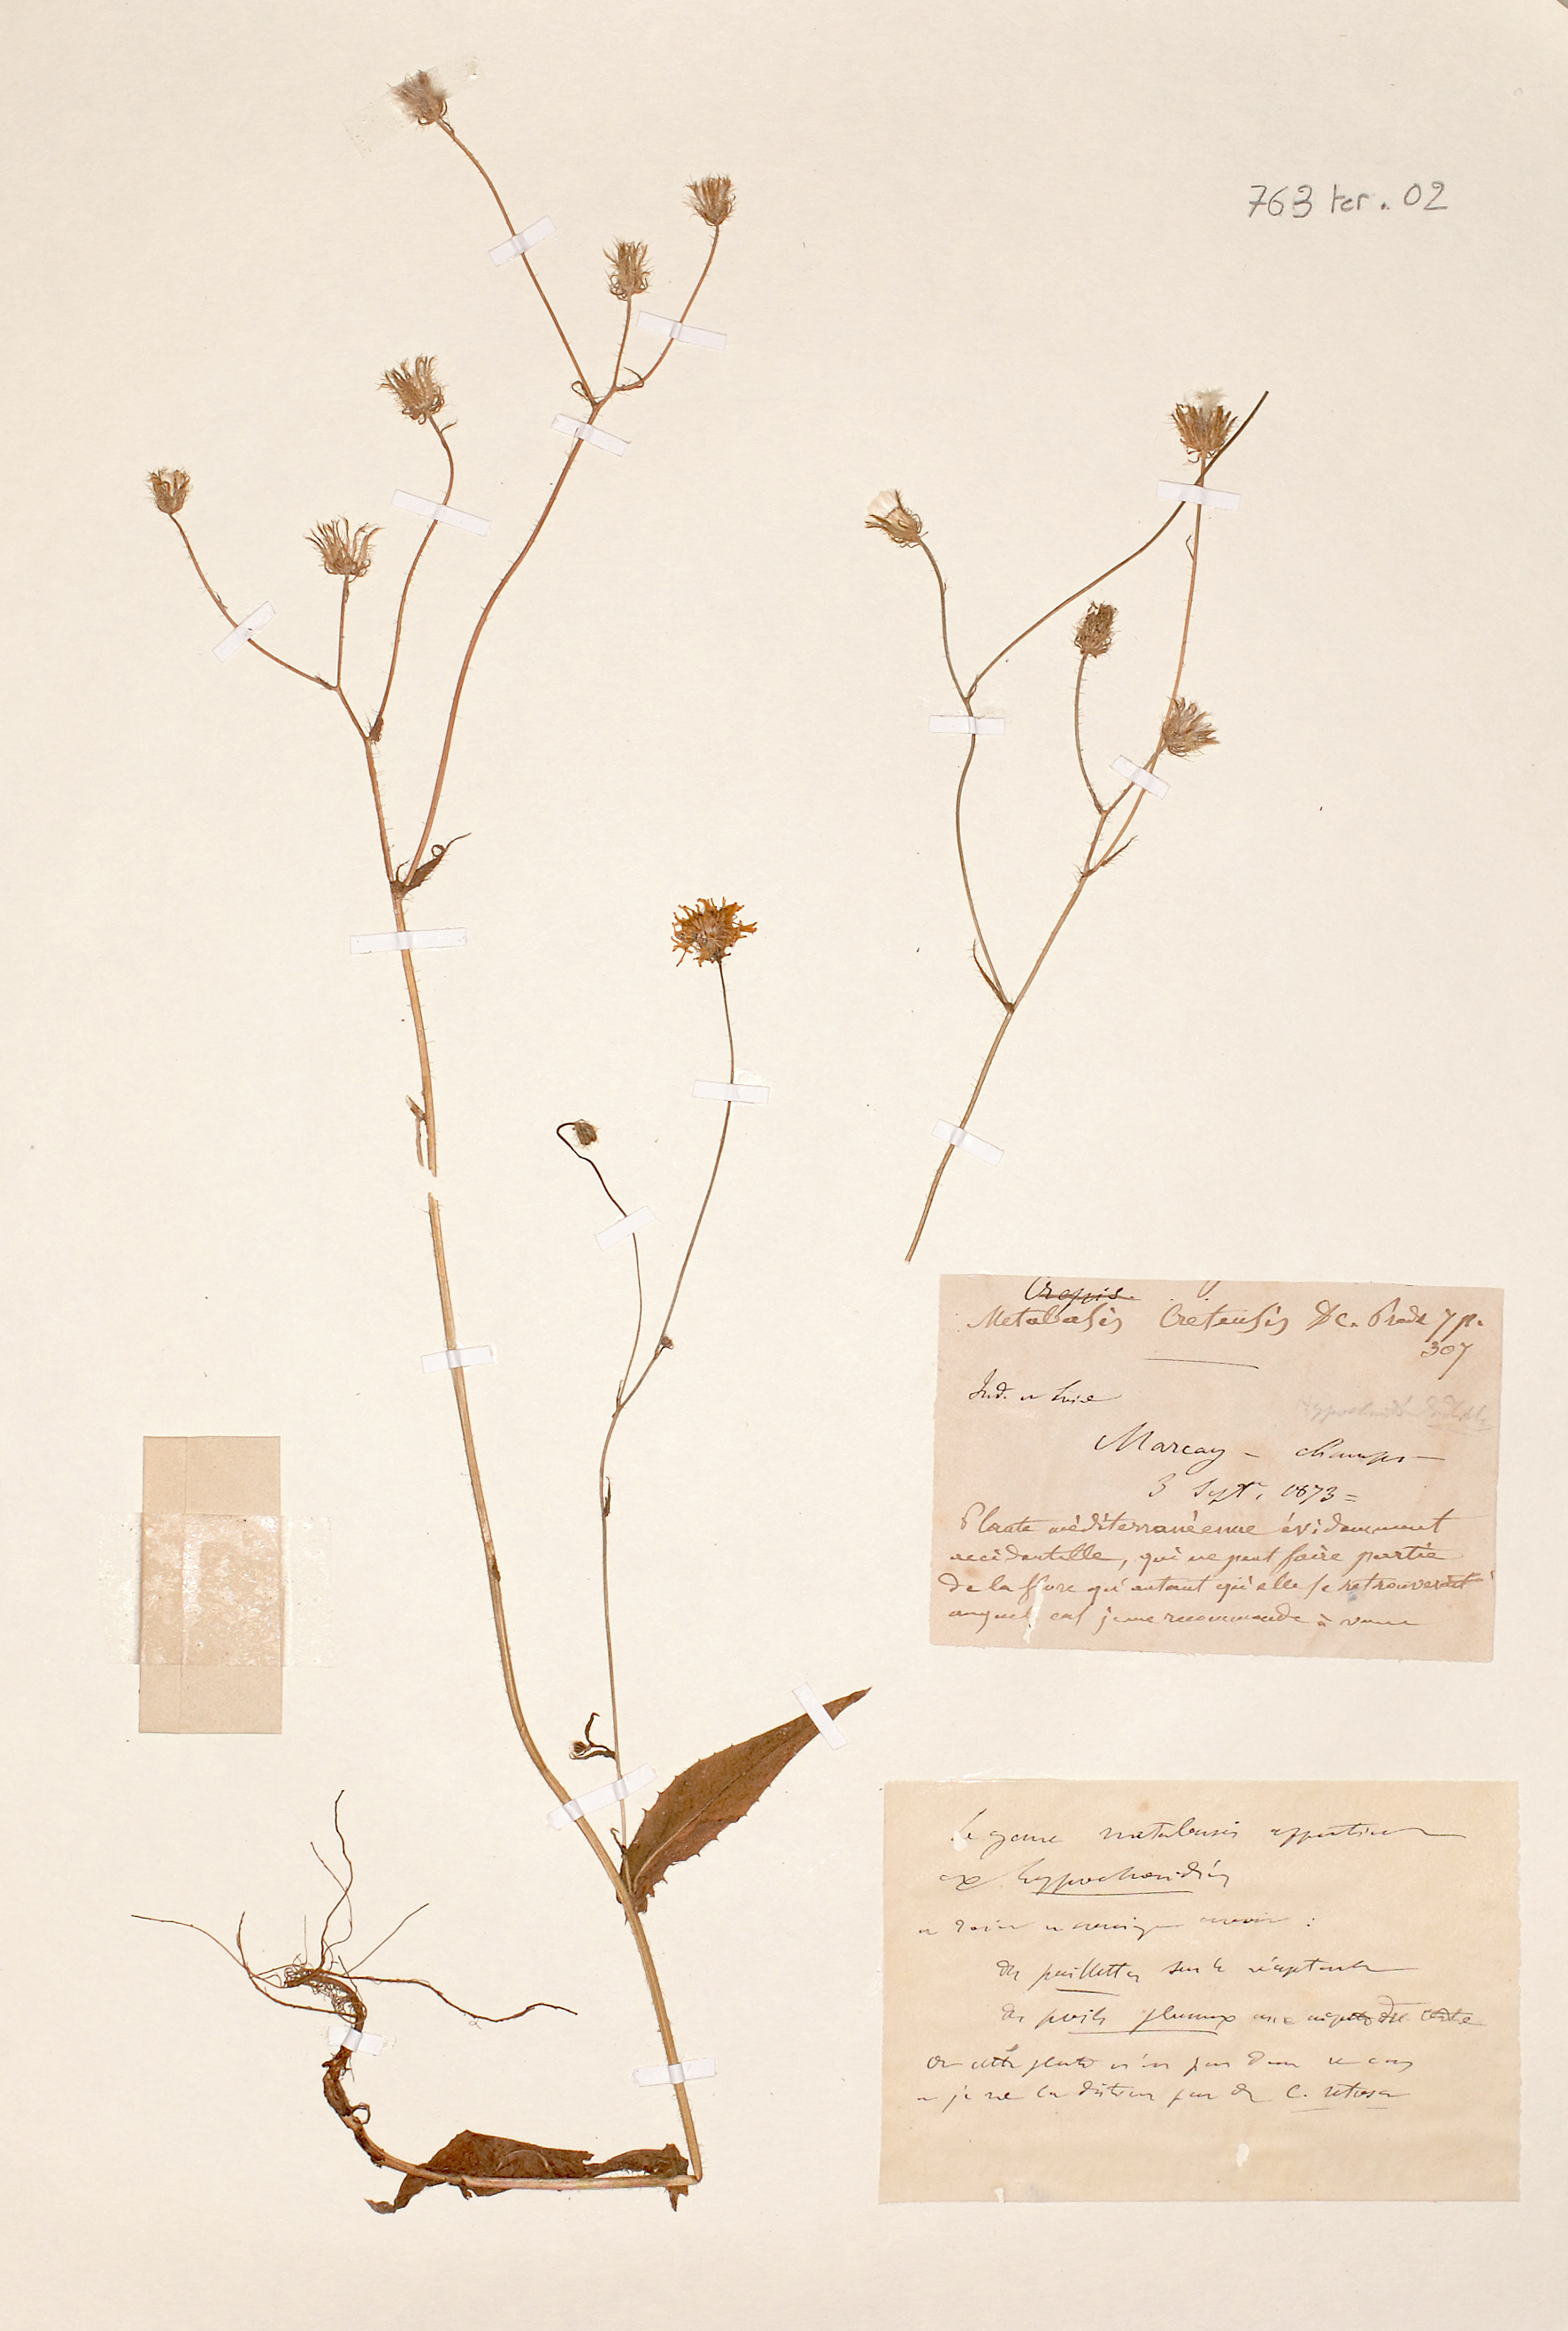 763 ter. 02
Crepis.
Metabasis Cretensis DC. Prodr 7 p.
307
Ind. et Loire
Marcay - champs
3 Sept. 1873 =
Plante méditerranéenne évidemment
accidentelle, qui ne peut faire partie
de la flore qu'autant qu'elle se retrouverait
auquel cas je me recommande à vous
Le genre metabasis appartient
aux hypochoeridées
des paillettes sur le réceptacle
des poils plumeux
or cette plante n'est pas dans ce cas
et je ne la distingue pas de C. setosa